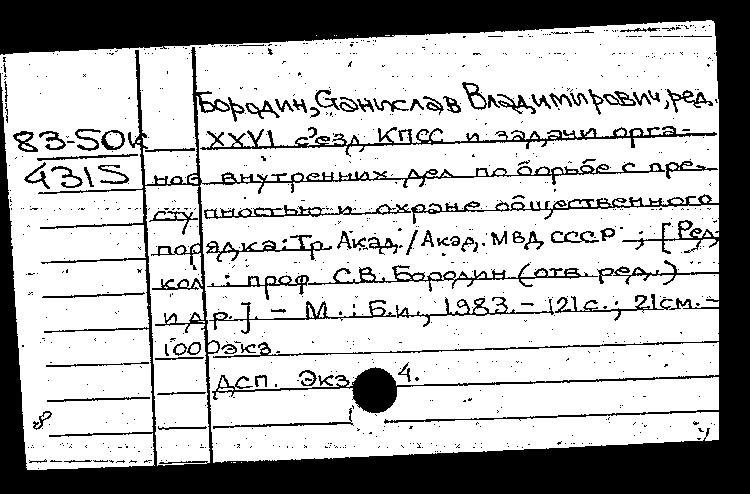 Бородин, Станислав Владимирович, ред.
83-5ОК XXVI съезд КПСС и задачи орга-
4315 нов внутренних дел по борьбе с пре-
ступностью и охране общественного
порядка: Тр. Акад. / Акад. МВД СССР ; [Ред.
кол. : проф. С.В. Бородин (отв. ред.)
и др.]. - М. : Б.и., 1983. - 121 с.; 21 см. -
1000 экз.
ДСП. Экз. 4.
8